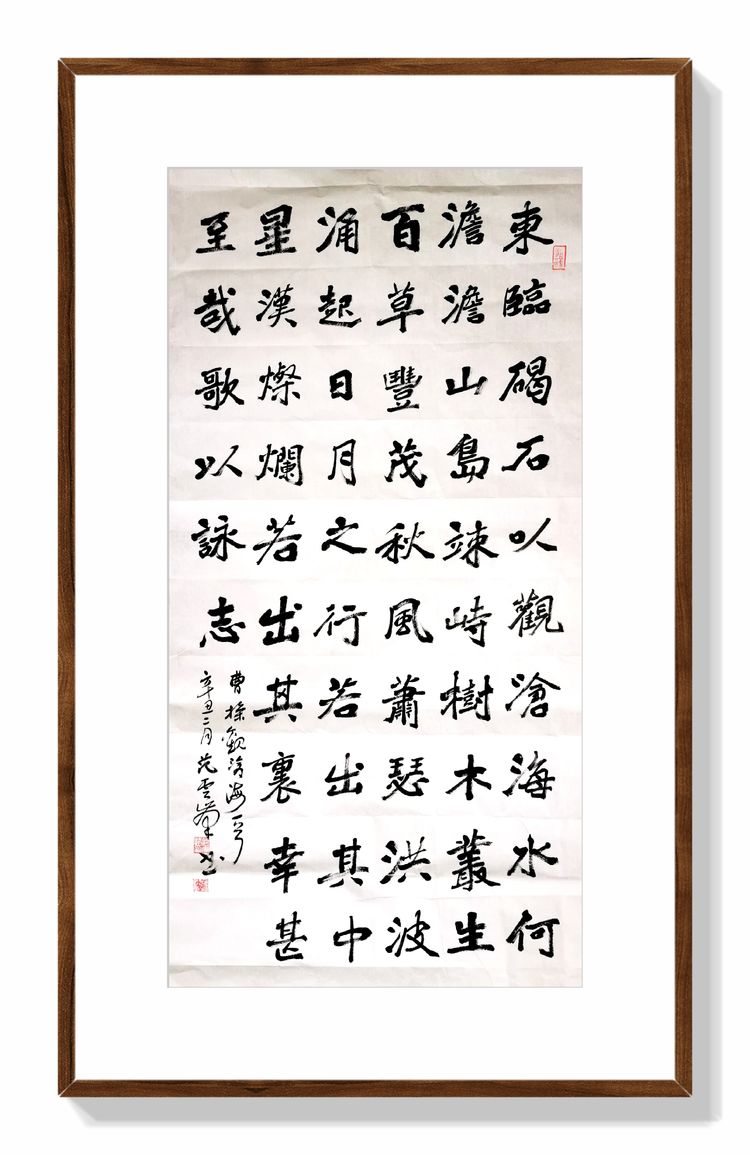 東臨碣石以觀滄海水何
澹澹山島竦峙樹木叢生
百草豐茂秋風蕭瑟洪波
涌起日月之行若出其中
星漢燦爛若出其裏幸甚
至哉歌以詠志
曹操觀滄海一首
辛丑二月范雲峰书